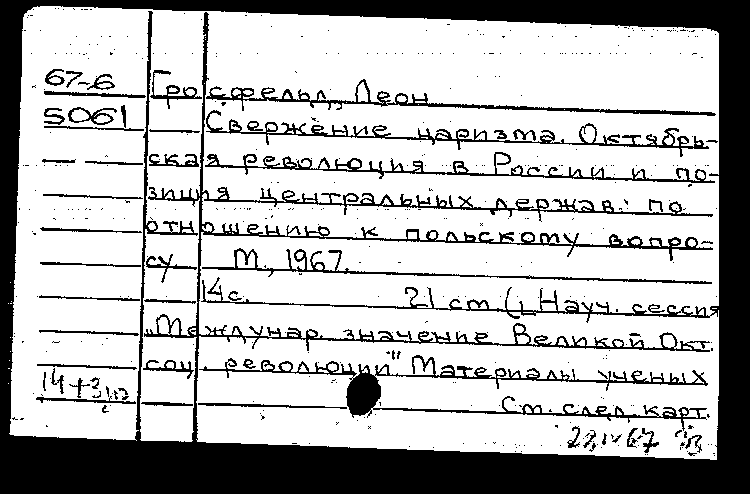 67-6 Гросфельд, Леон
5061 Свержение царизма. Октябрь-
ская революция в России и по-
зиция центральных держав по
отношению к польскому вопро-
су М., 1967.
14 с. 21 ст (Науч. сессия
„Междунар. значение Великой Окт.
соц. революции" Материалы ученых
14+3
См. след. карт.
67